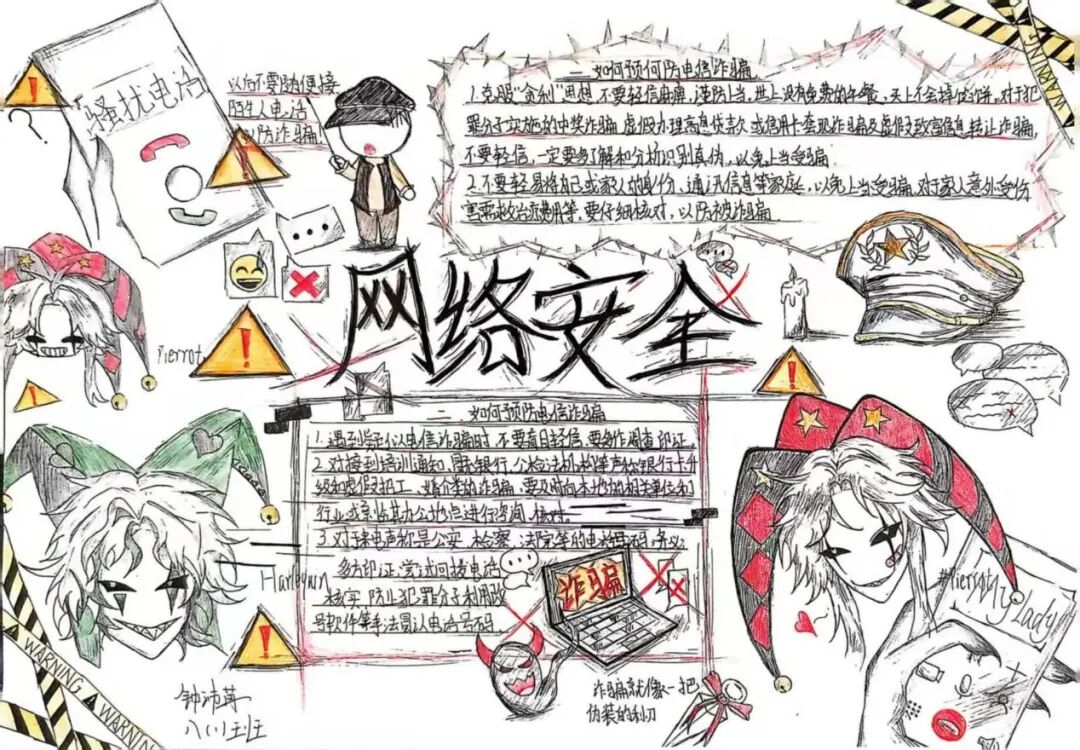 骚扰电话
以后不要随便接
陌生人电话
以防诈骗
一 如何预何防电信诈骗
1.克服“贪利”思想,不要轻信麻痹,谨防上当,世上没有免费的午餐,天上不会掉馅饼,对于犯
罪分子实施的中奖诈骗、虚假办理高息贷款或信用卡套现诈骗及虚假致富信息转让诈骗,
不要轻信,一定要多了解和分析识别真伪,以免上当受骗.
2.不要轻易将自己或家人的身份、通讯信息等家庭,以免上当受骗,对于家人意外受伤
害需求救治费用等,要仔细核对,以防被诈骗
网络安全
Pierrot
二 如何预防电信诈骗
1.遇到疑似电信诈骗时,不要盲目轻信,要多作调查印证.
2.对接到培训通知、冒充银行、公检法机构等声称银行卡升
级和虚假招工、婚介类的诈骗,要及时向本地的相关单位和
行业或亲临其办公地点进行咨询、核对.
3.对于来电声称是公安、检察、法院等的电话号码,
多方印证,尝试回拨电话
核实,防止犯罪分子利用改
号软件等手法冒认电话号码.
Harlequin
诈骗
#Pierrot
My Lady
诈骗就像一把
伪装的利刃
八(1)班
WARNING
WARNING
WARNING